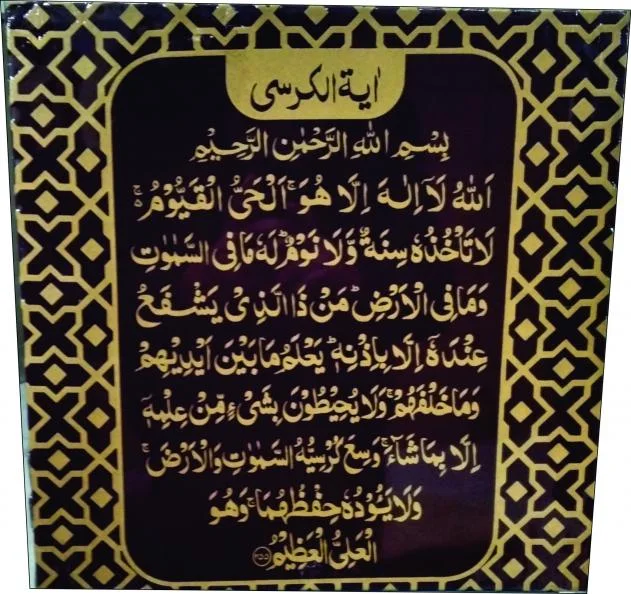 اٰية الكرسى
بِسْمِ اللّٰهِ الرَّحْمٰنِ الرَّحِيْمِ
اَللّٰهُ لَاۤ اِلٰهَ اِلَّا هُوَ ۚ اَلْحَىُّ الْقَيُّوْمُ ۚ
لَا تَاْخُذُهٗ سِنَةٌ وَّلَا نَوْمٌ ؕ لَهٗ مَا فِى السَّمٰوٰتِ
وَمَا فِى الْاَرْضِ ؕ مَنْ ذَا الَّذِىْ يَشْفَعُ
عِنْدَهٗۤ اِلَّا بِاِذْنِهٖ ؕ يَعْلَمُ مَا بَيْنَ اَيْدِيْهِمْ
وَمَا خَلْفَهُمْ ۚ وَلَا يُحِيْطُوْنَ بِشَىْءٍ مِّنْ عِلْمِهٖۤ
اِلَّا بِمَا شَآءَ ۚ وَسِعَ كُرْسِيُّهُ السَّمٰوٰتِ وَالْاَرْضَ ۚ
وَلَا يَـُٔوْدُهٗ حِفْظُهُمَا ۚ وَهُوَ
الْعَلِىُّ الْعَظِيْمُ ﴿۲۵۵﴾